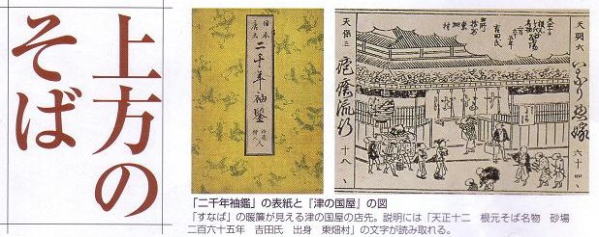 上方の
そば
二千年袖鑒
天保三
疱瘡流行
十八
天明六
六十四
「二千年袖鑑」の表紙と「津の国屋」の図
「すなば」の暖簾が見える津の国屋の店先。説明には「天正十二　根元そば名物　砂場
二百六十五年　吉田氏　出身　東畑村」の文字が読み取れる。